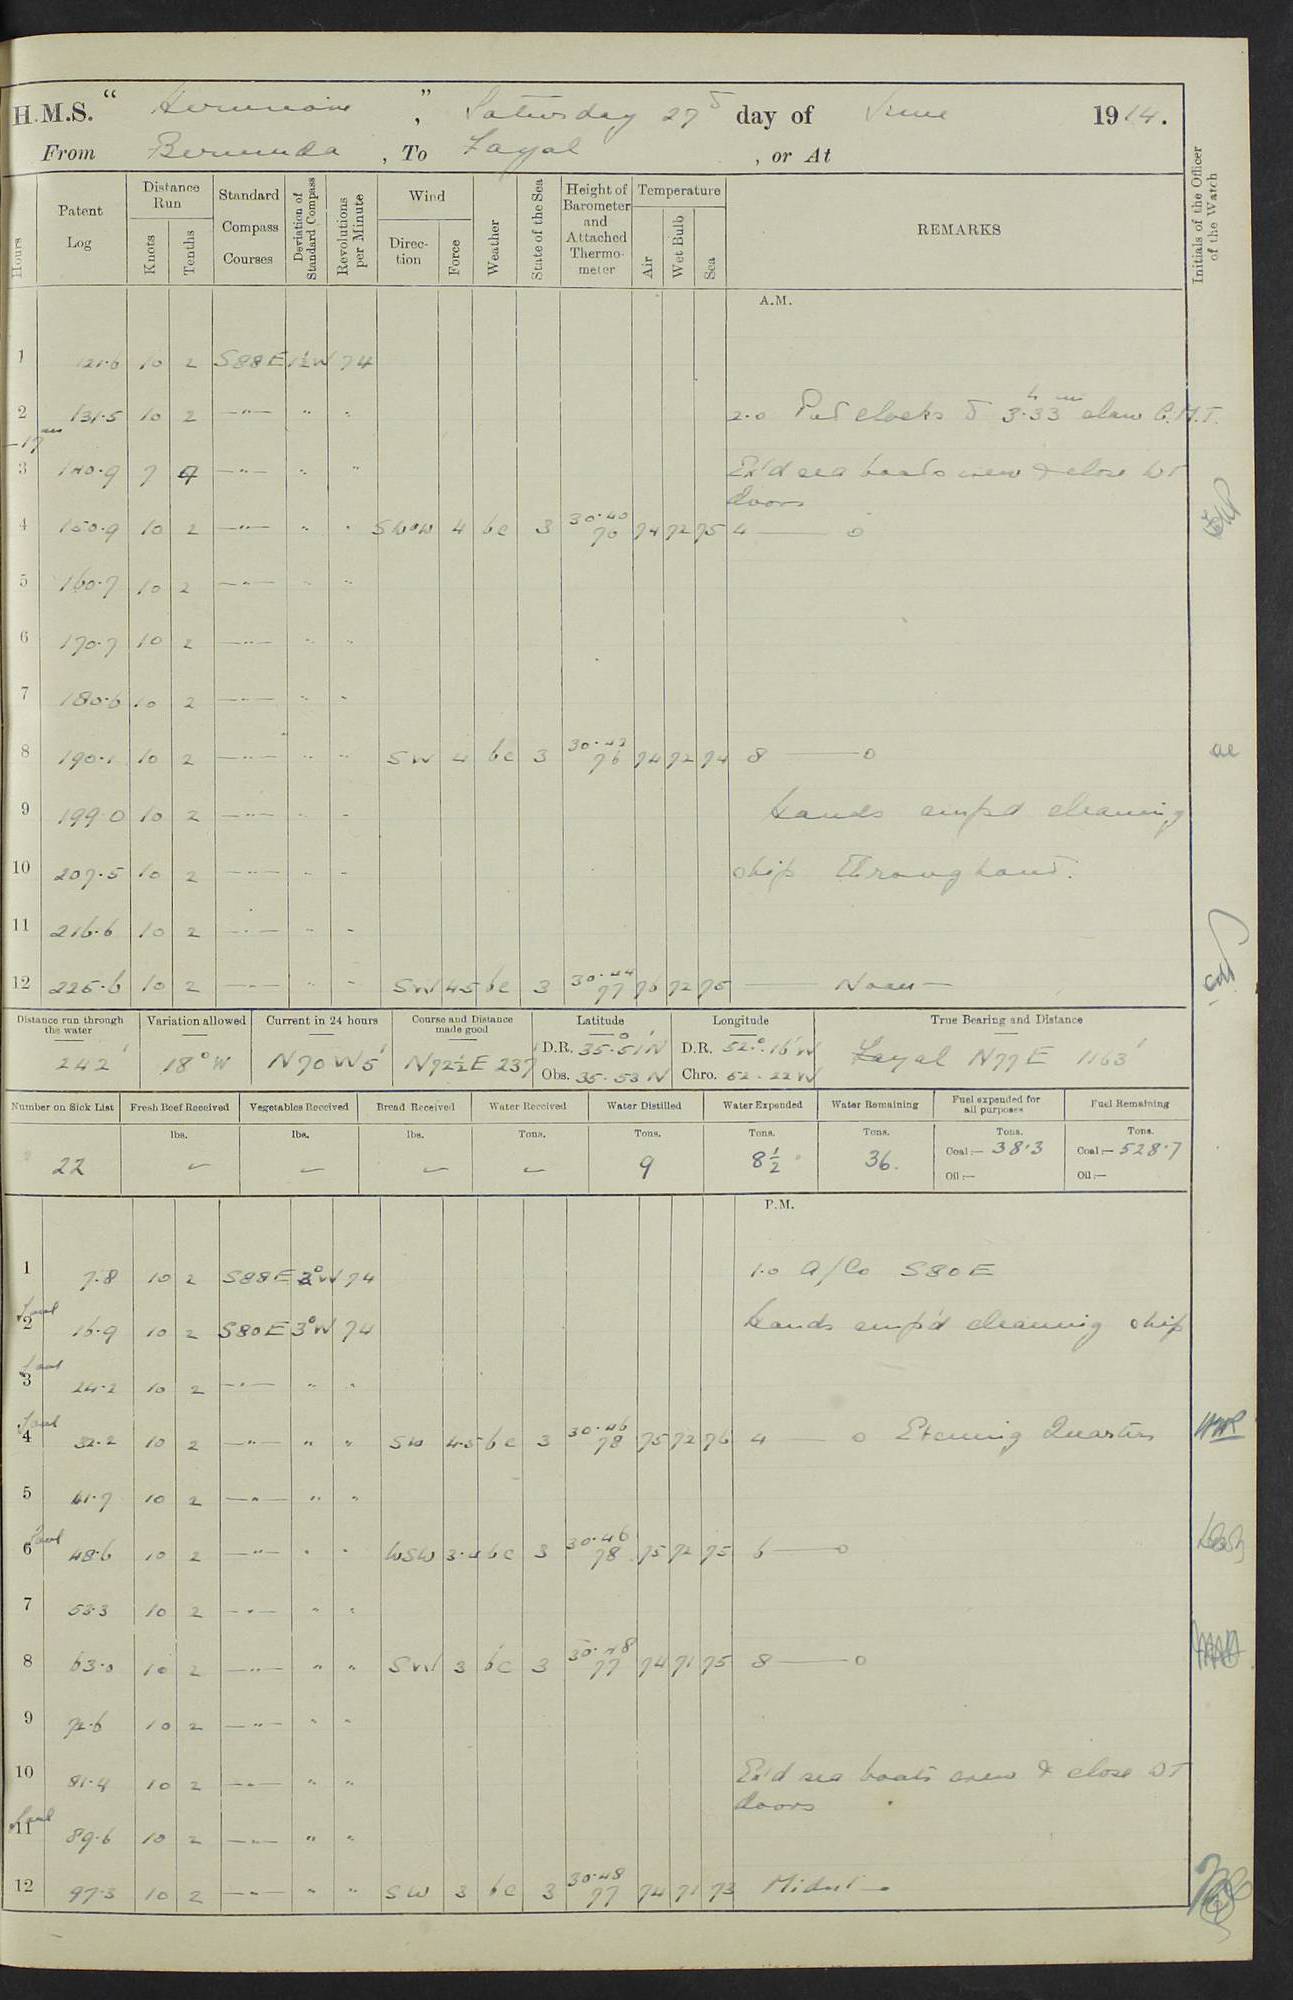 H.M.S. " Hermione ", Saturday 27th day of June 1914.
From Bermuda , To Fayal , or At
Hours
Patent Log
Distance Run
Knots
Tenths
Standard Compass Courses
Deviation of Standard Compass
Revolutions per Minute
Wind
Direction
Force
Weather
State of the Sea
Height of Barometer and Attached Thermometer
Temperature
Air
Wet Bulb
Sea
REMARKS
Initials of the Officer of the Watch
A.M.
1 121.6 10 2 S88E 1½W 74
2 131.5 10 2 —"— " " 2.0 Put clocks to 3h.33m slow G.M.T.
-17m
3 140.9 7 4 —"— " " Ex'd sea boats crew & close WT
doors
4 150.9 10 2 —"— " " SWbW 4 bc 3 30.40 70 74 72 75 4 —— 0
5 160.7 10 2 —"— " "
6 170.7 10 2 —"— " "
7 180.6 10 2 —"— " "
8 190.1 10 2 —"— " " SW 4 bc 3 30.42 76 74 72 74 8 —— 0
9 199.0 10 2 —"— " " Hands emp'd cleaning
10 207.5 10 2 —"— " " ship throughout.
11 216.6 10 2 —"— " "
12 225.6 10 2 —"— " " SW 4.5 bc 3 30.44 77 76 72 75 — Noon —
Distance run through the water
242'
Variation allowed
18°W
Current in 24 hours
N70W 5'
Course and Distance made good
N72½E 237'
Latitude
D.R. 35.51'N
Obs. 35.53 N
Longitude
D.R. 52°.16'W
Chro. 52.22W
True Bearing and Distance
Fayal N77E 1163'
Number on Sick List
22
Fresh Beef Received
lbs.
Vegetables Received
lbs.
Bread Received
lbs.
Water Received
Tons.
Water Distilled
Tons.
9
Water Expended
Tons.
8½
Water Remaining
Tons.
36.
Fuel expended for all purposes
Tons.
Coal:— 38.3
Oil:—
Fuel Remaining
Tons.
Coal:— 528.7
Oil:—
P.M.
1 7.8 10 2 S88E 3°W 74 1.0 A/Co S80E
Foul
2 16.9 10 2 S80E 3°W 74 Hands emp'd cleaning ship
Foul
3 24.2 10 2 —"— " "
Foul
4 32.2 10 2 —"— " " SW 4.5 bc 3 30.46 78 75 72 76 4 —— 0 Evening Quarters
5 41.7 10 2 —"— " "
Foul
6 48.6 10 2 —"— " " WSW 3.4 bc 3 30.46 78 75 72 75 6 —— 0
7 53.3 10 2 —"— " "
8 63.0 10 2 —"— " " SW 3 bc 3 30.48 77 74 71 75 8 —— 0
9 72.6 10 2 —"— " "
10 81.4 10 2 —"— " " Ex'd sea boats crew & close WT
doors
Foul
11 89.6 10 2 —"— " "
12 97.3 10 2 —"— " " SW 3 bc 3 30.48 77 74 71 73 Midnt —